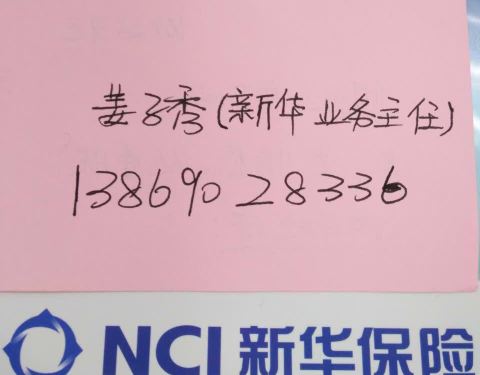 姜子秀(新华业务主任)
13869028336
NCI 新华保险